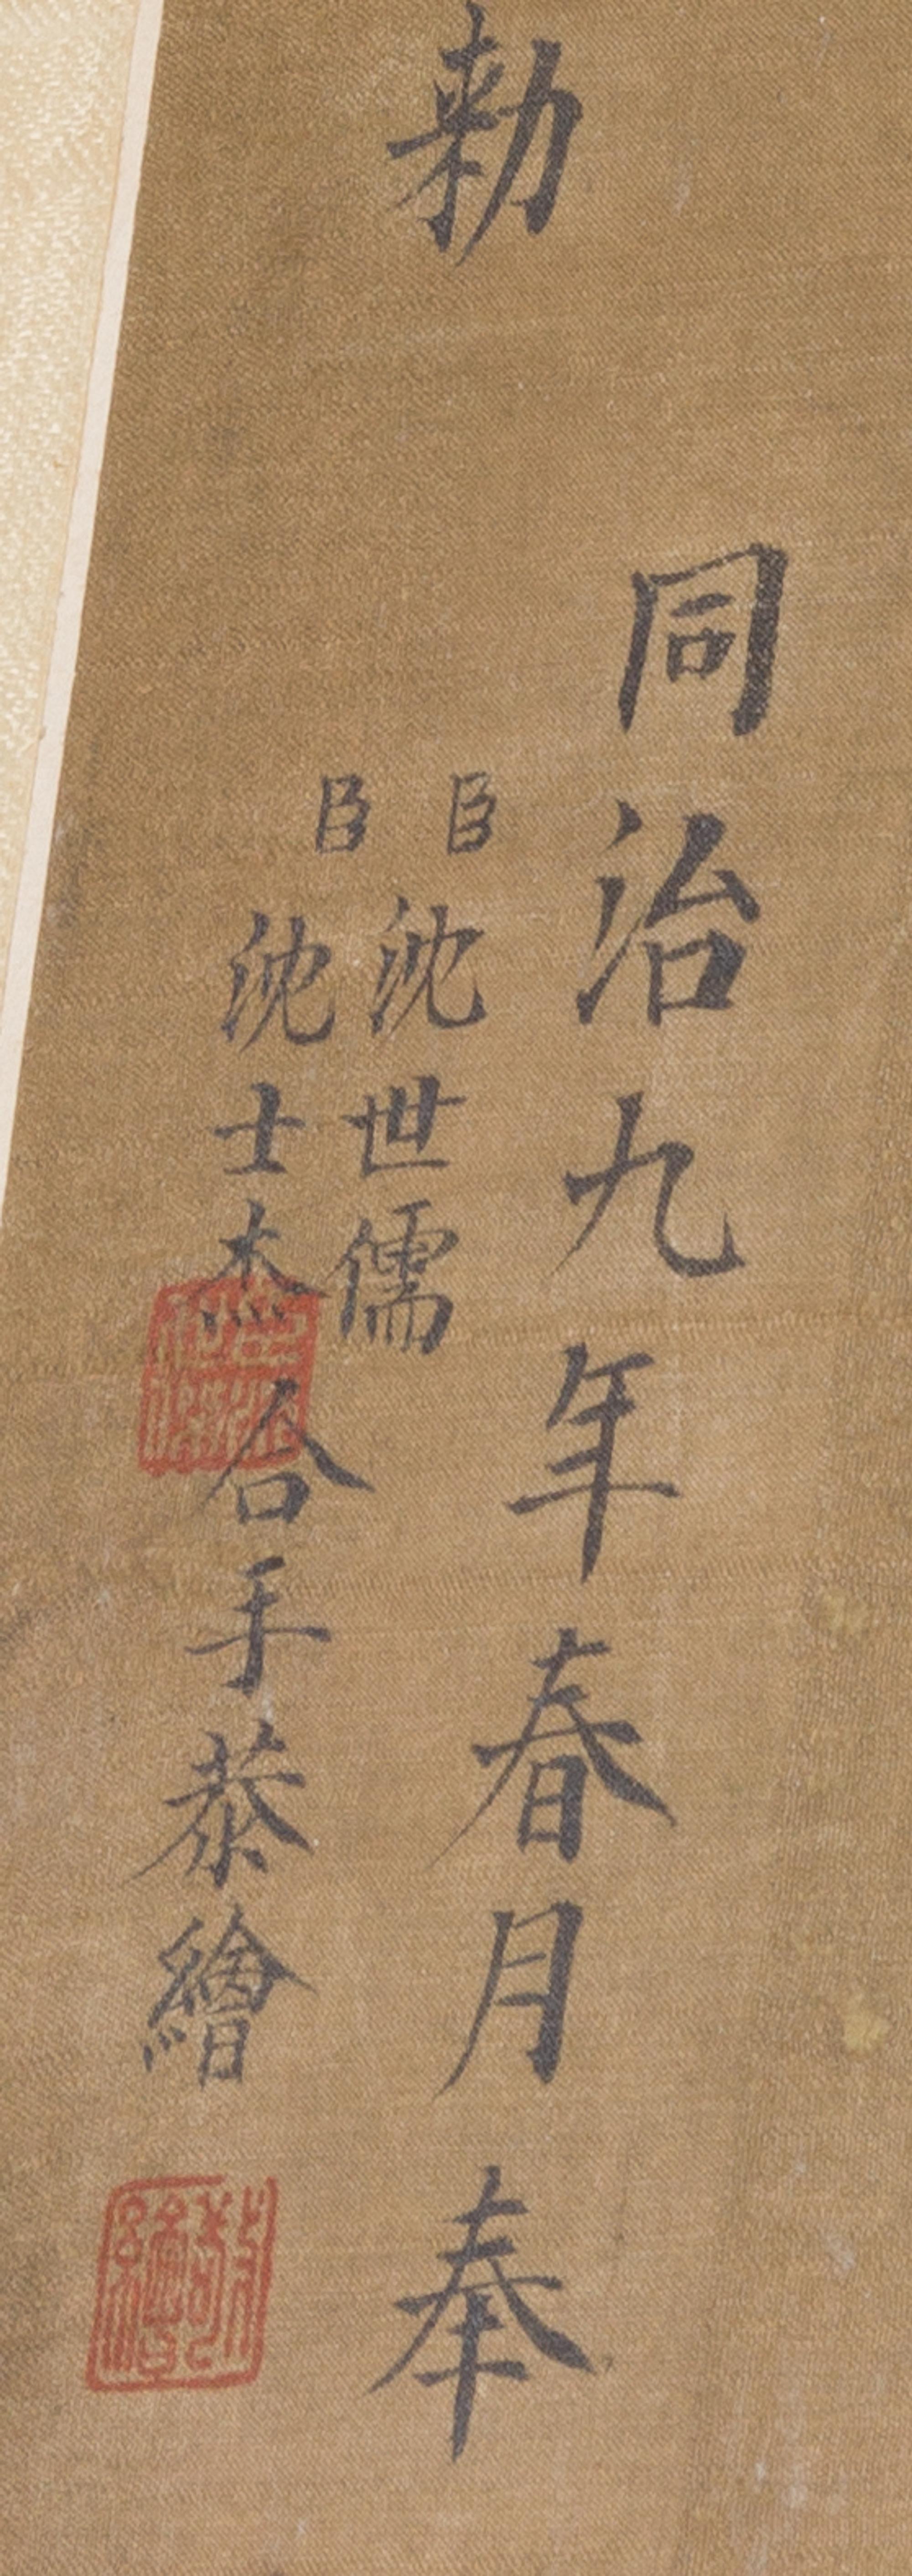 同治九年春月奉
勅
臣沈世儒
臣沈士杰合手恭繪
敬繪